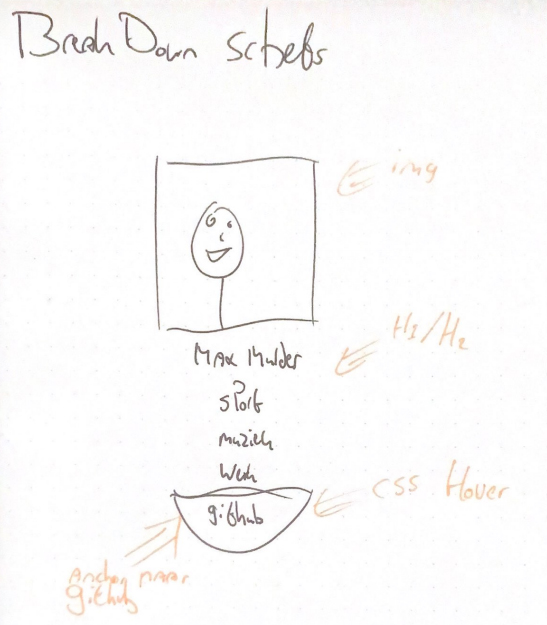 BreakDown schets
img
H1/H2
Max Mulder
sport
muziek
Werk
CSS Hover
github
Anchor naar
github